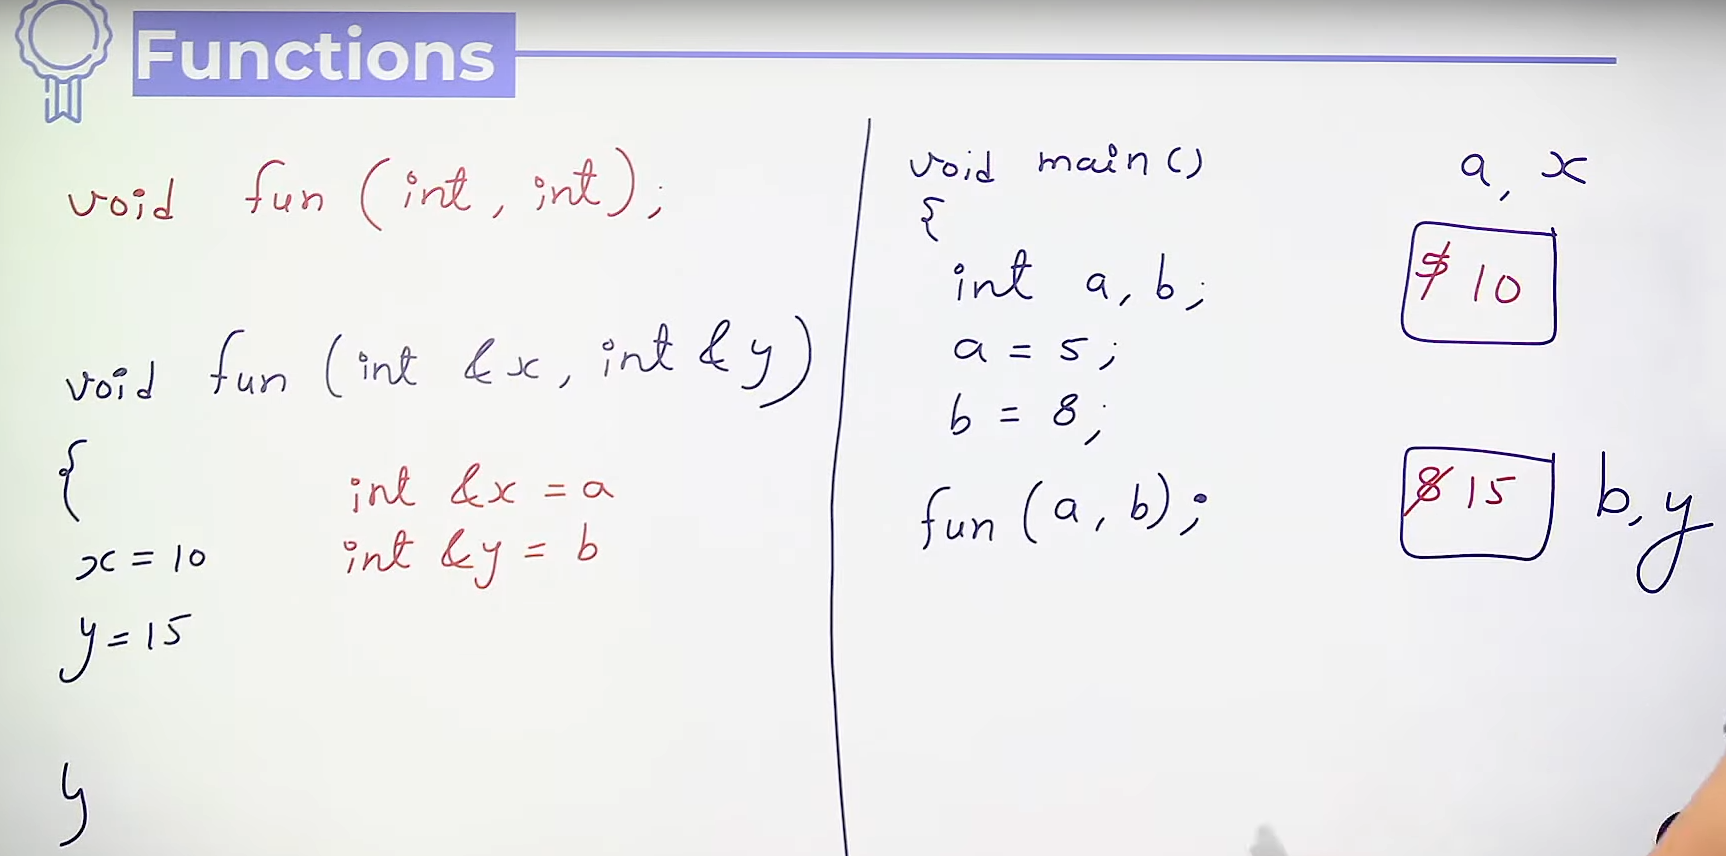 Functions
void fun (int, int);
void fun (int &x, int &y)
{
int &x = a
int &y = b
x = 10
y = 15
}
void main()
{
int a, b;
a = 5;
b = 8;
fun (a, b);
a, x
5 10
8 15 b, y